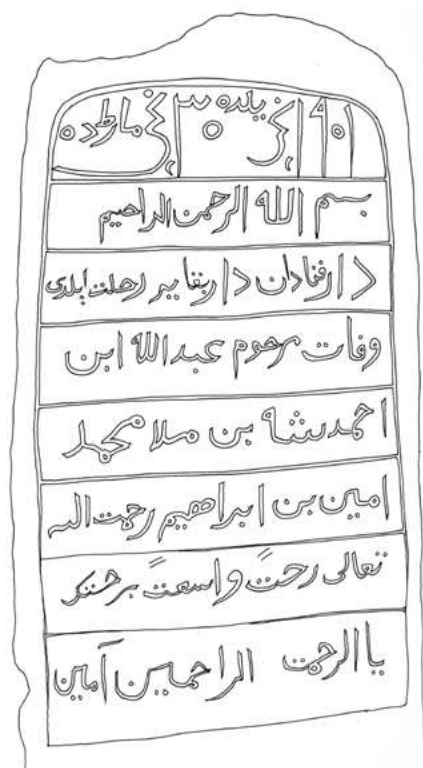 يلده
بسم الله الرحمن الراحيم
دارفنادان داربقايه رحلت ايلدى
وفات مرحوم عبد الله ابن
احمدشاه بن ملا محمد
امين بن ابراهيم رحمت الله
تعالى رحمتً واسعتً
ياالرحمت الراحمين آمين